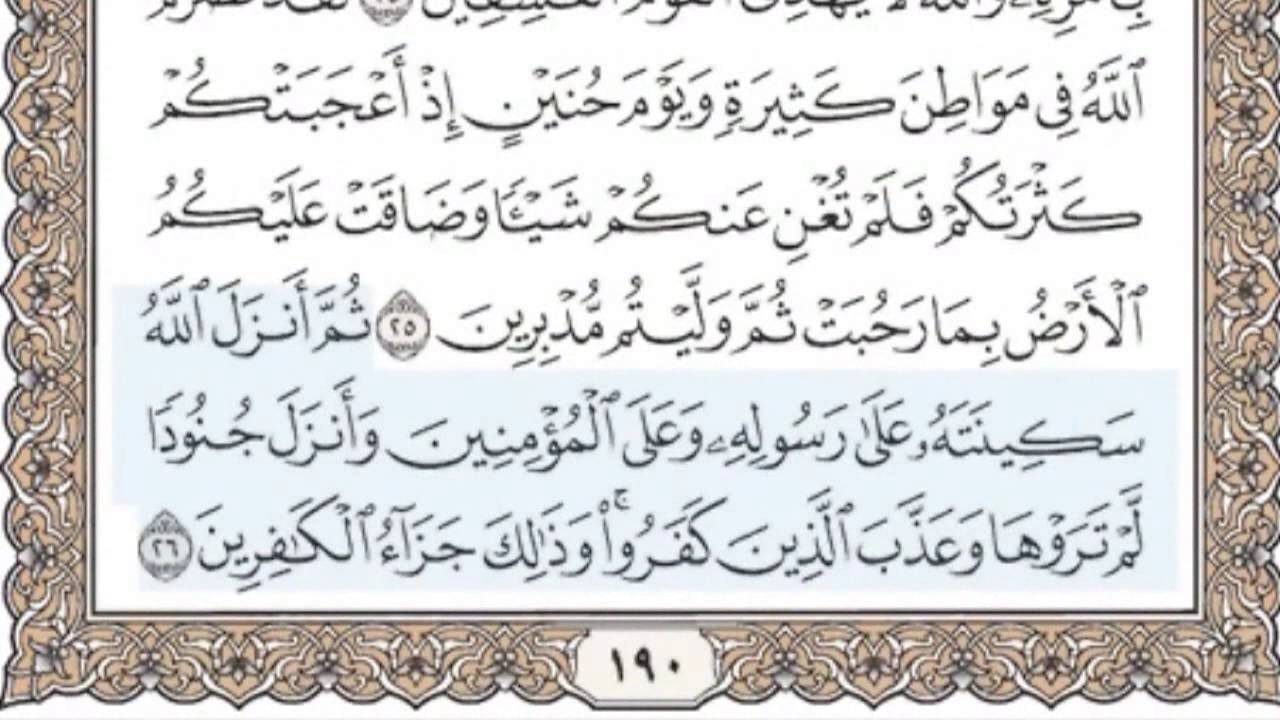 بِأَمْرِهِۦ وَٱللَّهُ لَا يَهْدِى ٱلْقَوْمَ ٱلْفَٰسِقِينَ ٢٤ لَقَدْ نَصَرَكُمُ
ٱللَّهُ فِى مَوَاطِنَ كَثِيرَةٍ وَيَوْمَ حُنَيْنٍ إِذْ أَعْجَبَتْكُمْ
كَثْرَتُكُمْ فَلَمْ تُغْنِ عَنكُمْ شَيْـًٔا وَضَاقَتْ عَلَيْكُمُ
ٱلْأَرْضُ بِمَا رَحُبَتْ ثُمَّ وَلَّيْتُم مُّدْبِرِينَ ٢٥ ثُمَّ أَنزَلَ ٱللَّهُ
سَكِينَتَهُۥ عَلَىٰ رَسُولِهِۦ وَعَلَى ٱلْمُؤْمِنِينَ وَأَنزَلَ جُنُودًا
لَّمْ تَرَوْهَا وَعَذَّبَ ٱلَّذِينَ كَفَرُوا۟ ۚ وَذَٰلِكَ جَزَآءُ ٱلْكَٰفِرِينَ ٢٦
١٩٠